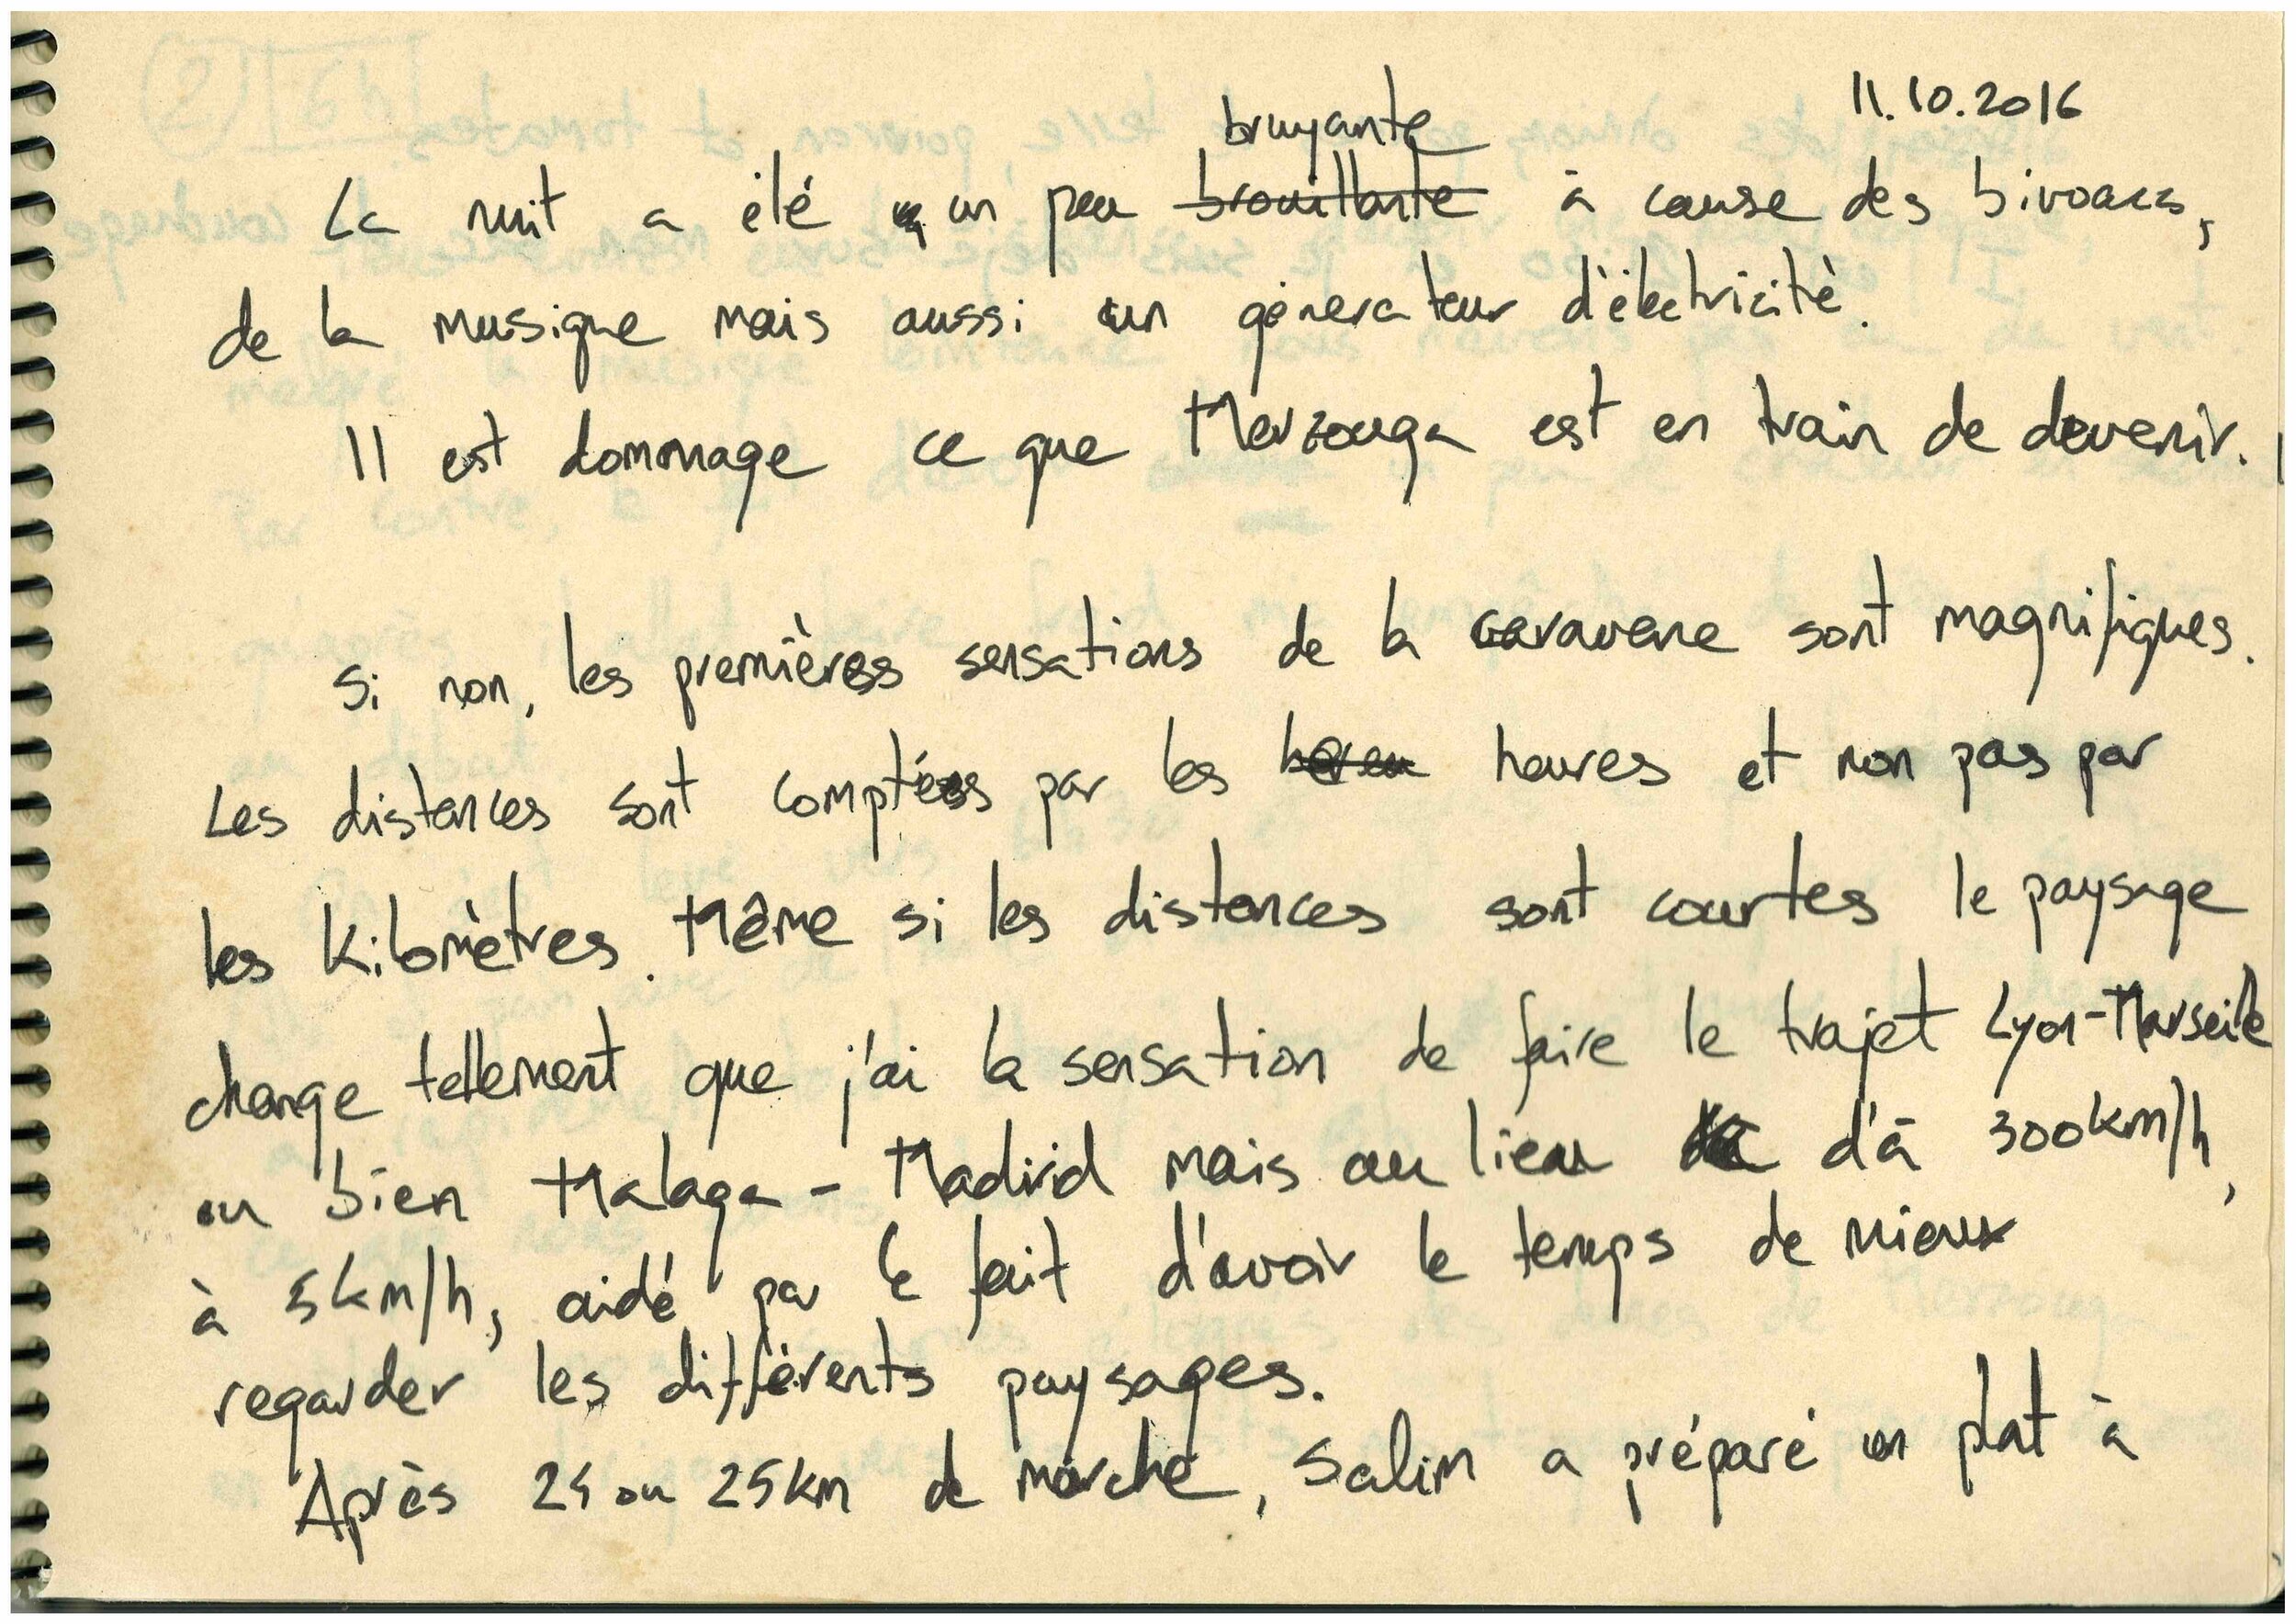 11.10.2016
bruyante
La nuit a été un peu brouillante à cause des bivoacs,
de la musique mais aussi un générateur d'électricité.
Il est dommage ce que Merzouga est en train de devenir.
Si non, les premières sensations de la caravane sont magnifiques.
Les distances sont comptées par les heures et non pas par
les kilomètres. Même si les distances sont courtes le paysage
change tellement que j'ai la sensation de faire le trajet Lyon-Marseille
ou bien Malaga - Madrid mais au lieu d'à 300km/h,
à 5km/h, aidé par le fait d'avoir le temps de mieux
regarder les différents paysages.
Après 24 ou 25km de marche, Salim a préparé un plat à